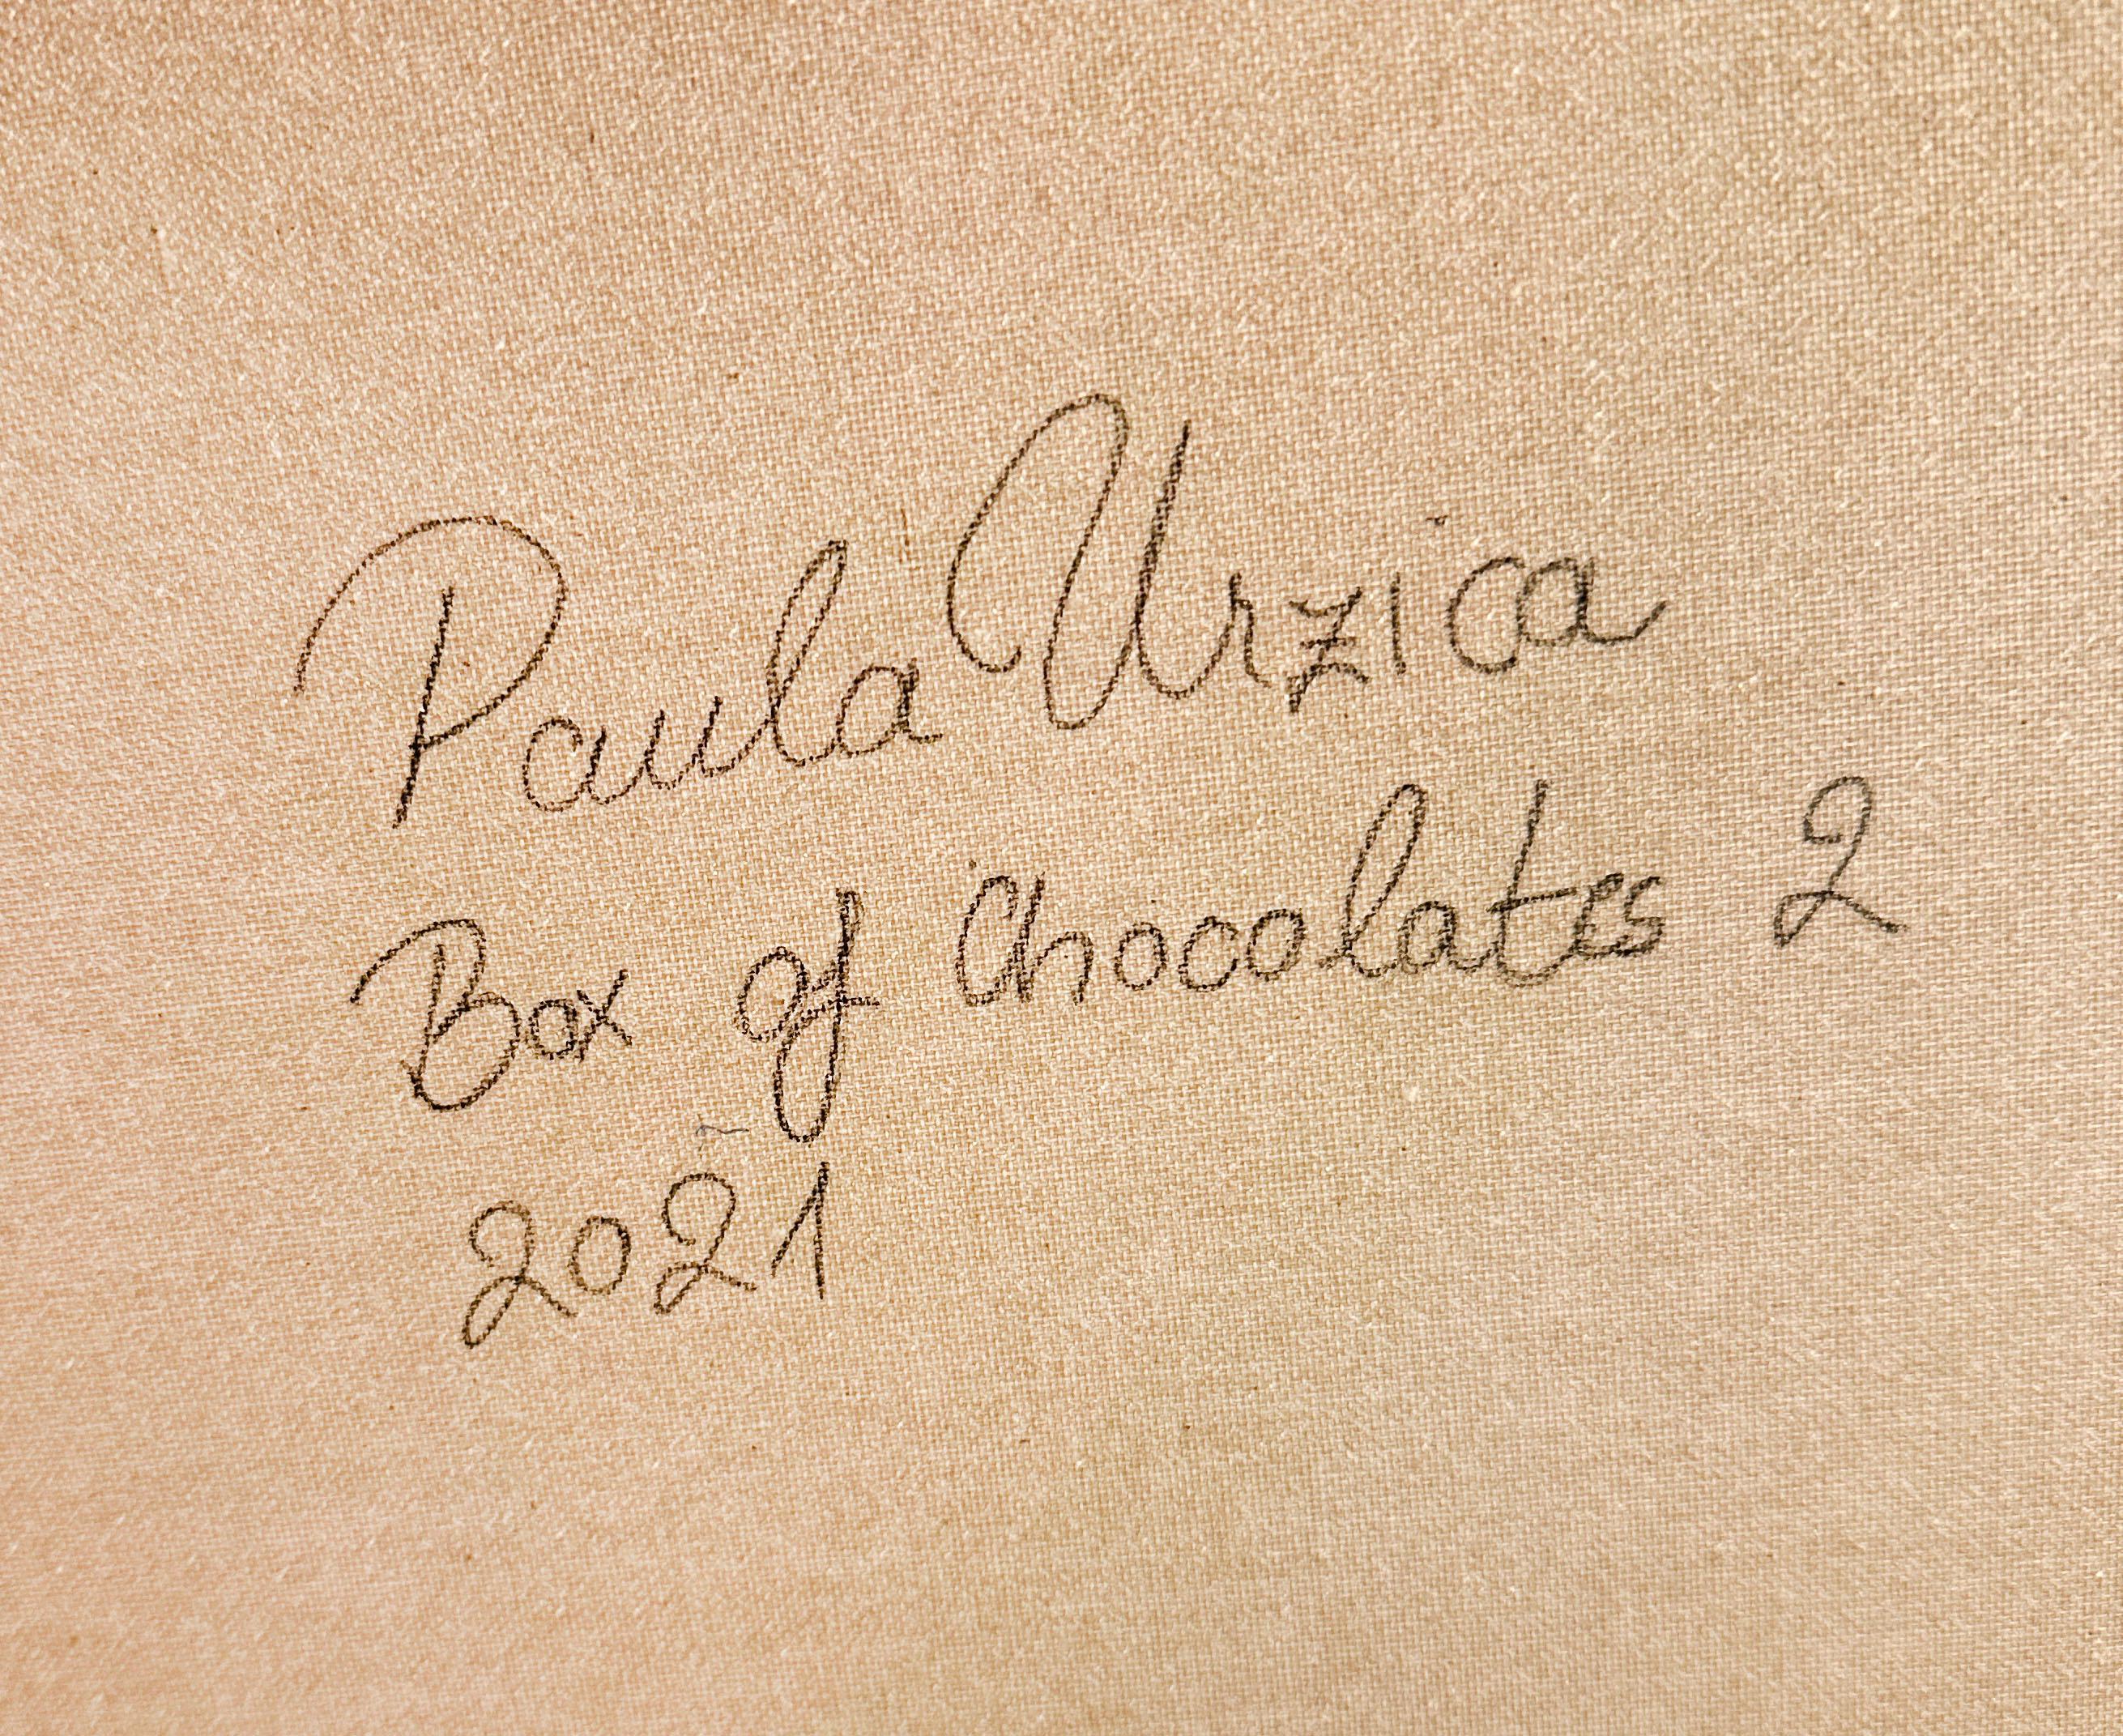 Paula Urzica
Box of Chocolates 2
2021